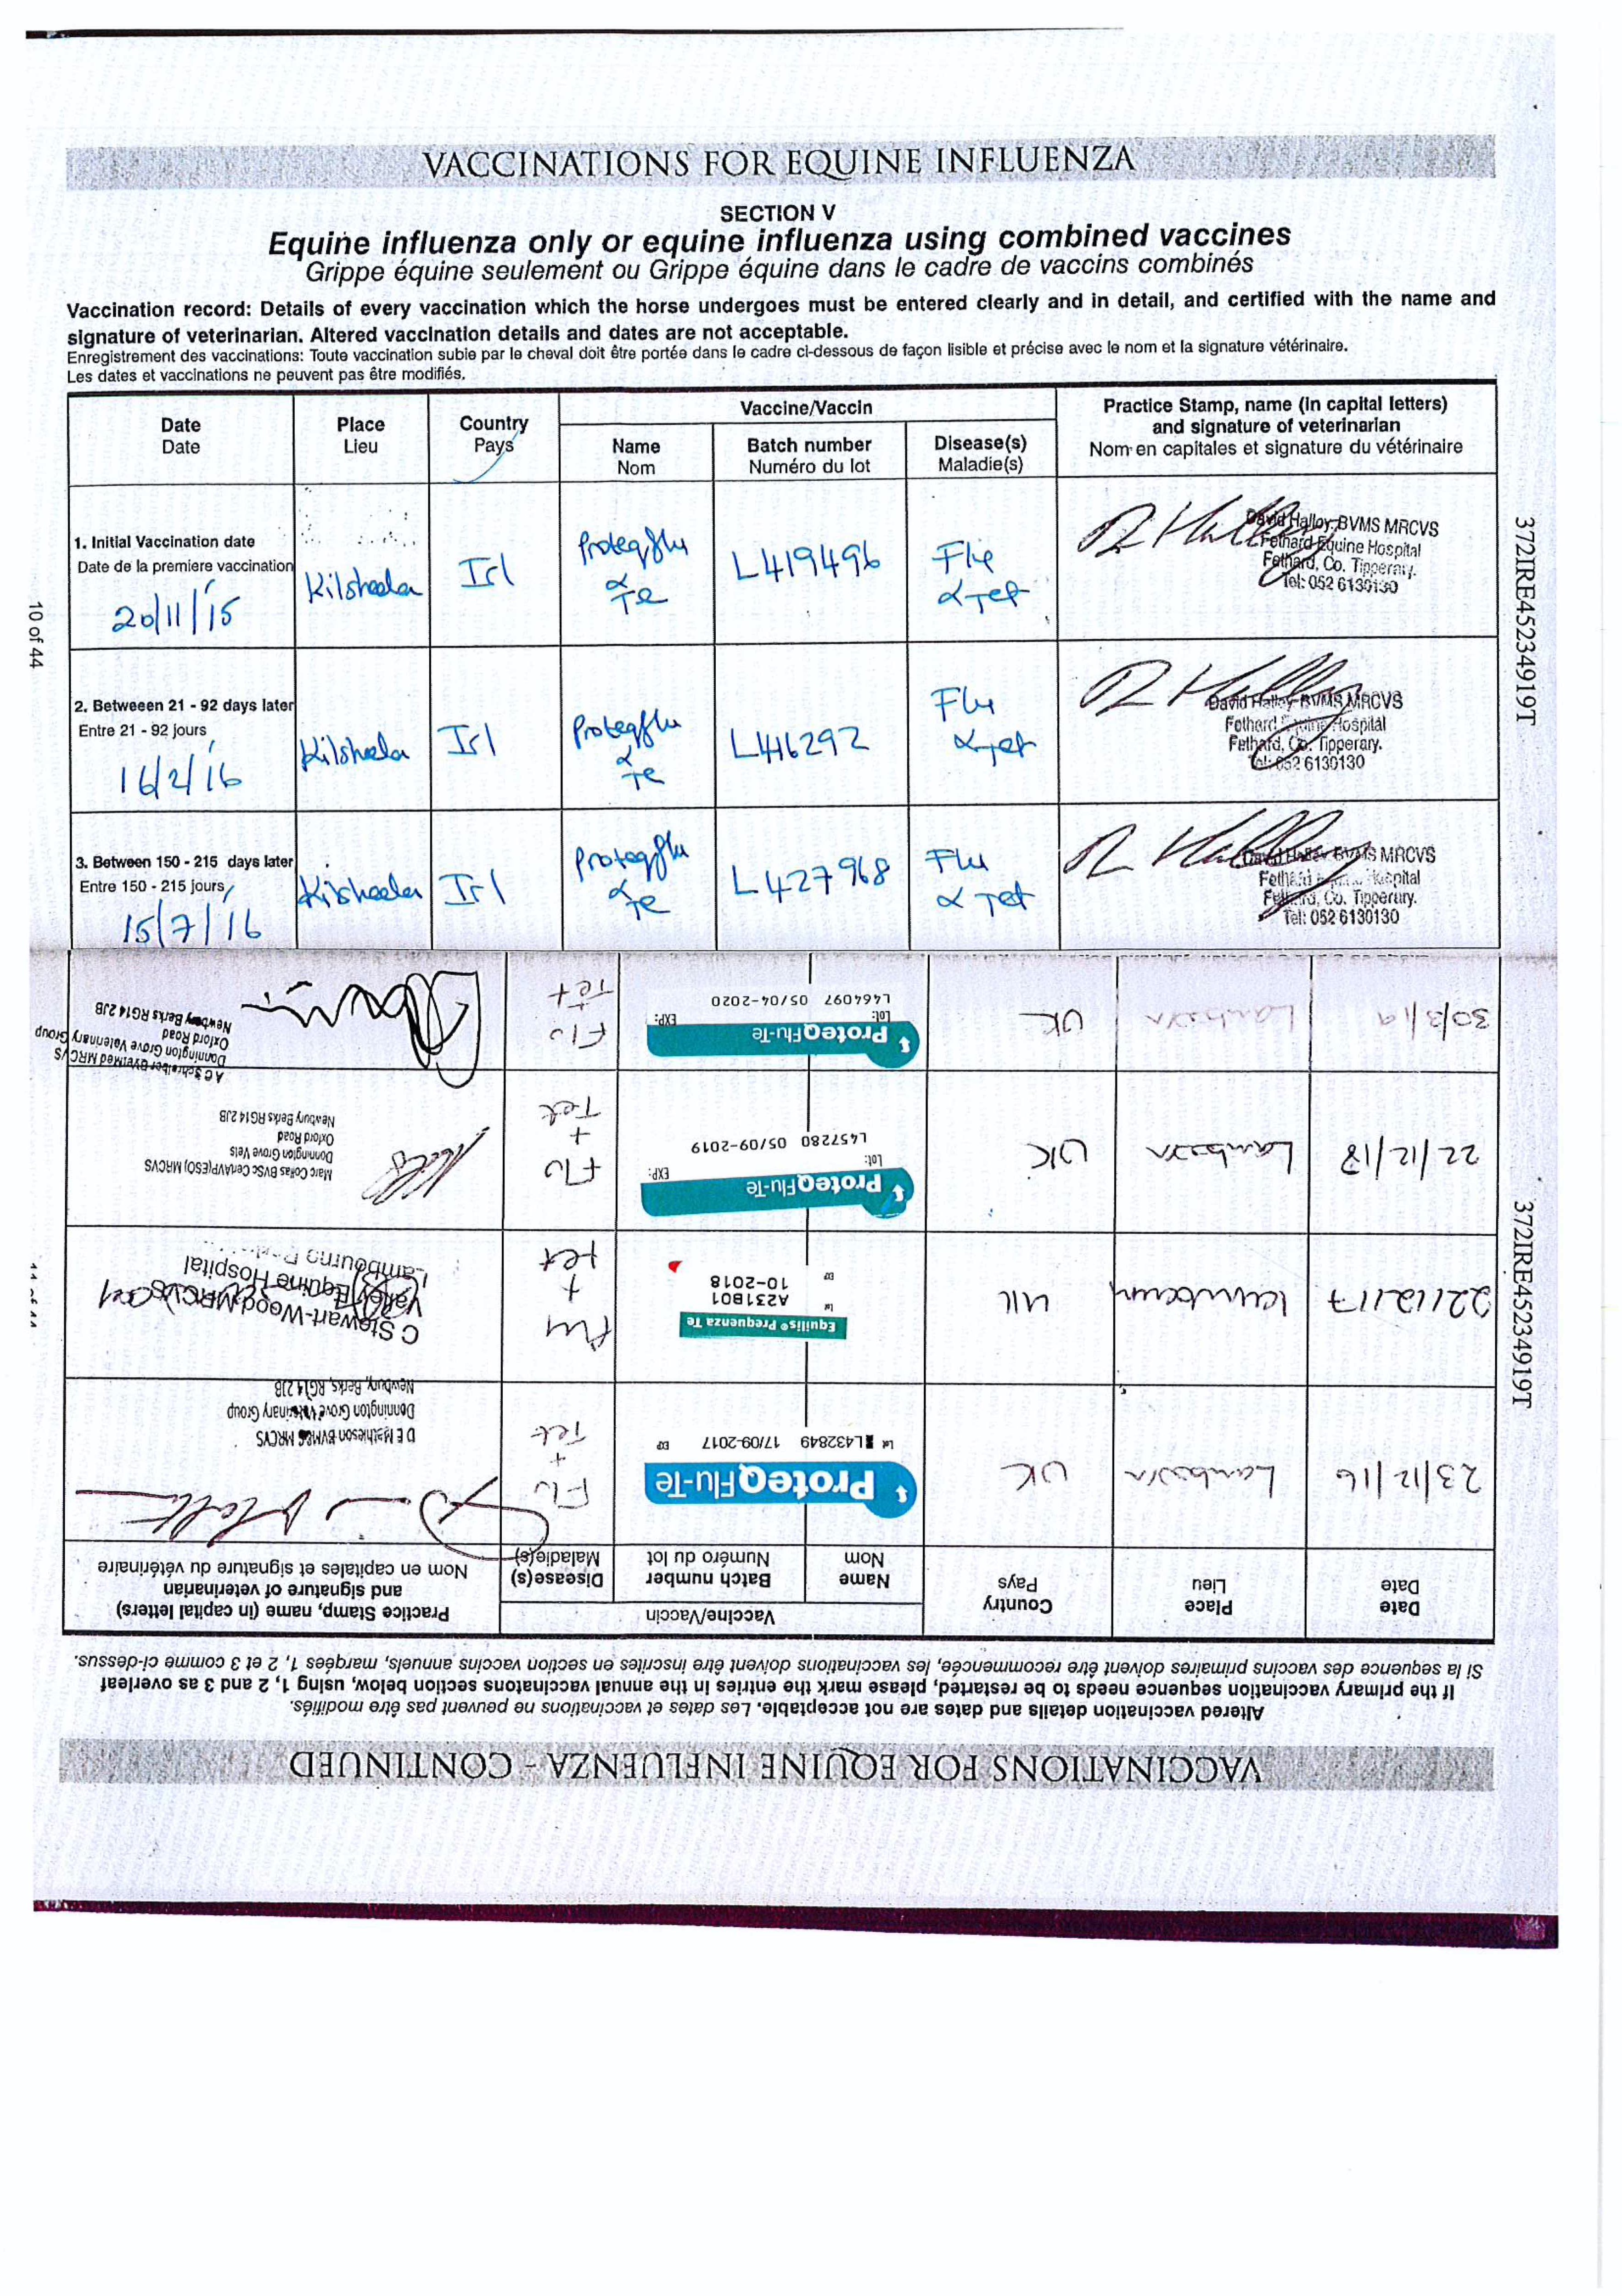 VACCINATIONS FOR EQUINE INFLUENZA
SECTION V
Equine influenza only or equine influenza using combined vaccines
Grippe équine seulement ou Grippe équine dans le cadre de vaccins combinés
Vaccination record: Details of every vaccination which the horse undergoes must be entered clearly and in detail, and certified with the name and
signature of veterinarian. Altered vaccination details and dates are not acceptable.
Enregistrement des vaccinations: Toute vaccination subie par le cheval doit être portée dans le cadre ci-dessous de façon lisible et précise avec le nom et la signature vétérinaire.
Les dates et vaccinations ne peuvent pas être modifiés.
Date
Date
Place
Lieu
Country
Pays
Vaccine/Vaccin
Name
Nom
Batch number
Numéro du lot
Disease(s)
Maladie(s)
Practice Stamp, name (in capital letters)
and signature of veterinarian
Nom en capitales et signature du vétérinaire
1. Initial Vaccination date
Date de la premiere vaccination
20/11/15
Kilsheelan
Irl
Proteqflu
& Te
L419496
Flu
& Tet
David Halley BVMS MRCVS
Fethard Equine Hospital
Fethard, Co. Tipperary.
Tel: 052 6130130
2. Betweeen 21 - 92 days later
Entre 21 - 92 jours
16/2/16
Kilsheelan
Irl
Proteqflu
& Te
L416292
Flu
& Tet
David Halley BVMS MRCVS
Fethard Equine Hospital
Fethard, Co. Tipperary.
Tel: 052 6130130
3. Between 150 - 215 days later
Entre 150 - 215 jours
15/7/16
Kilsheelan
Irl
Proteqflu
& Te
L427968
Flu
& Tet
David Halley BVMS MRCVS
Fethard Equine Hospital
Fethard, Co. Tipperary.
Tel: 052 6130130
10 of 44
372IRE45234919T
372IRE45234919T
VACCINATIONS FOR EQUINE INFLUENZA - CONTINUED
Altered vaccination details and dates are not acceptable. Les dates et vaccinations ne peuvent pas être modifiés.
If the primary vaccination sequence needs to be restarted, please mark the entries in the annual vaccinatons section below, using 1, 2 and 3 as overleaf
Si la sequence des vaccins primaires doivent être recommencée, les vaccinations doivent être inscrites en section vaccins annuels, marqées 1, 2 et 3 comme ci-dessus.
Date
Date
Place
Lieu
Country
Pays
Vaccine/Vaccin
Name
Nom
Batch number
Numéro du lot
Disease(s)
Maladie(s)
Practice Stamp, name (in capital letters)
and signature of veterinarian
Nom en capitales et signature du vétérinaire
23/12/16
Lambourn
UK
ProteqFlu-Te
Lot L432849 17/09-2017 EXP
Flu
+
Tet
D E Mathieson BVM&S MRCVS
Donnington Grove Veterinary Group
Newbury, Berks, RG14 2JB
22/12/17
Lambourn
UK
Equilis® Prequenza Te
Lot A231B01
EXP 10-2018
Flu
+
tet
C Stewart-Wood MRCVS
Valley Equine Hospital
Lambourn
22/12/18
Lambourn
UK
ProteqFlu-Te
Lot: EXP:
L457280 05/09-2019
Flu
+
Tet
Marc Coñas BVSc CertAVP(ESO) MRCVS
Donnington Grove Vets
Oxford Road
Newbury Berks RG14 2JB
30/3/19
Lambourn
UK
ProteqFlu-Te
Lot: EXP:
L464097 05/04-2020
Flu
+
Tet
A C Schreiber BVetMed MRCVS
Donnington Grove Veterinary Group
Oxford Road
Newbury Berks RG14 2JB